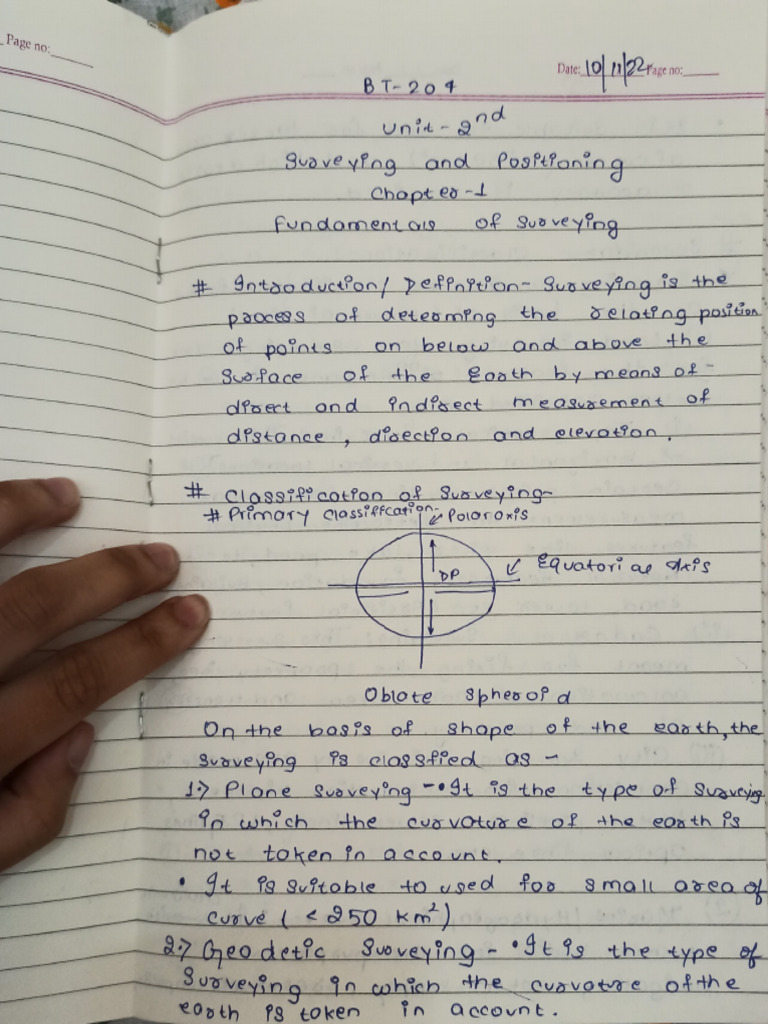 Page no:
Date: 10/11/22 Page no:
BT-204
Unit-2nd
Surveying and Positioning
Chapter-1
Fundamentals of Surveying
# Introduction/ Definition- Surveying is the
process of determing the relating position
of points on below and above the
Surface of the Earth by means of-
direct and indirect measurement of
distance, direction and elevation.
# Classification of Surveying-
# Primary Classification-
Polar axis
Equatorial Axis
DP
Oblate Spheroid
On the basis of shape of the earth, the
surveying is classfied as -
1.) Plane Surveying - • It is the type of Surveying
in which the curvature of the earth is
not taken in account.
• It is suitable to used for small area of
curve ( < 250 km²)
2.) Geodetic Surveying - • It is the type of
Surveying in which the curvature of the
earth is taken in account.